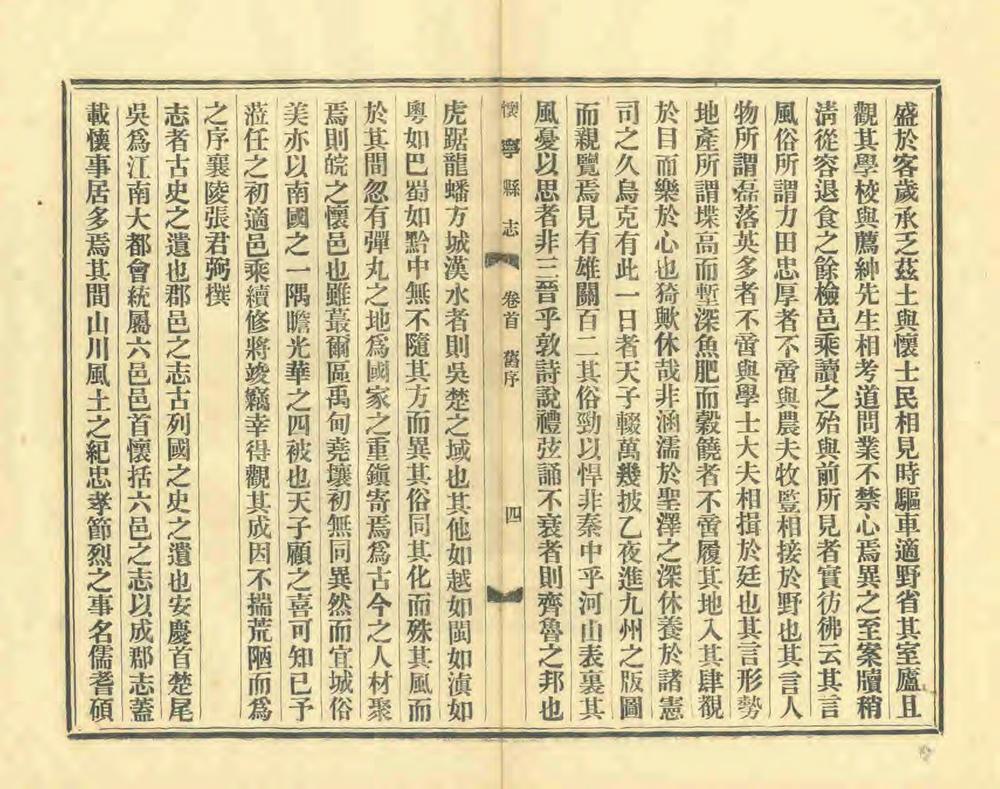 盛於客歲承乏茲土與懷士民相見時驅車適野省其室廬且
觀其學校與薦紳先生相考道問業不禁心焉異之至案牘稍
淸從容退食之餘檢邑乘讀之殆與前所見者實彷彿云其言
風俗所謂力田忠厚者不啻與農夫牧豎相接於野也其言人
物所謂磊落英多者不啻與學士大夫相揖於廷也其言形勢
地產所謂堞高而塹深魚肥而穀饒者不啻履其地入其肆覩
於目而樂於心也猗歟休哉非涵濡於聖澤之深休養於諸憲
司之久烏克有此一日者天子輟萬幾披乙夜進九州之版圖
而親覽焉見有雄關百二其俗勁以悍非秦中乎河山表裏其
風憂以思者非三晉乎敦詩說禮弦誦不衰者則齊魯之邦也
懷寧縣志 卷首 舊序 四
虎踞龍蟠方城漢水者則吳楚之域也其他如越如閩如滇如
粵如巴蜀如黔中無不隨其方而異其俗同其化而殊其風而
於其間忽有彈丸之地爲國家之重鎭寄焉爲古今之人材聚
焉則皖之懷邑也雖蕞爾區禹甸堯壤初無同異然而宜城俗
美亦以南國之一隅瞻光華之四被也天子顧之喜可知已予
蒞任之初適邑乘續修將竣竊幸得觀其成因不揣荒陋而爲
之序襄陵張君弼撰
志者古史之遺也郡邑之志古列國之史之遺也安慶首楚尾
吳爲江南大都會統屬六邑邑首懷括六邑之志以成郡志蓋
載懷事居多焉其間山川風土之紀忠孝節烈之事名儒耆碩